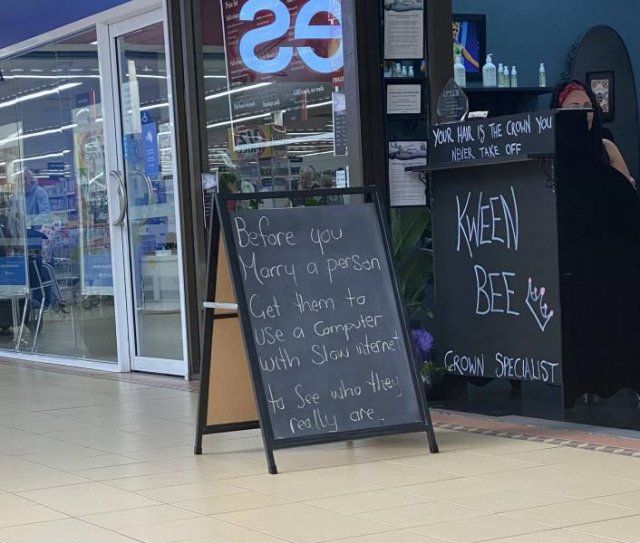 es
Before you
Marry a person
Get them to
use a Computer
with Slow internet
to See who they
really are.
YOUR HAIR IS THE CROWN YOU
NEVER TAKE OFF
KWEEN
BEE
CROWN SPECIALIST